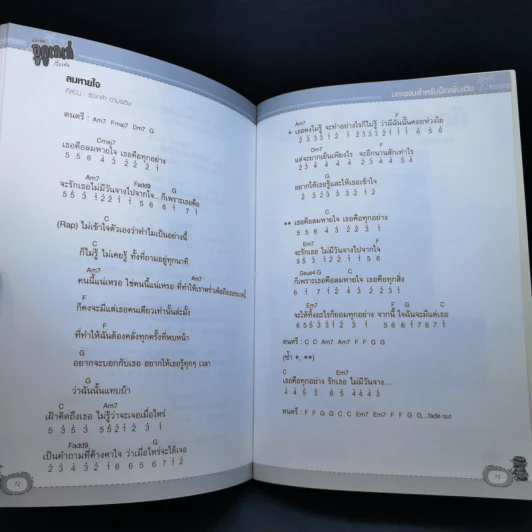 อูคูเลเล่
ลมหายใจ
ศิลปิน : ซีเควนซ์ ชานระติ
ดนตรี : Am7 Fmaj7 Dm7 G
Cmaj7
เธอคือลมหายใจ เธอคือทุกอย่าง
5 5 6 4 3 2 2 2 1
Am7 Fadd9 G
จะรักเธอไม่มีวันจางไปจากใจ... ก็เพราะเธอคือ
C
(Rap) ไม่เข้าใจตัวเองว่าทำไมเป็นอย่างนี้
C
ก็ไม่รู้ ไม่เคยรู้ ทั้งที่ถามอยู่ทุกนาที
Am7 Am7
คนนี้แน่เหรอ ใช่คนนี้แน่เหรอ ที่ทำให้เราพร่ำเพ้อถึงเธอขนาดนี้
F
คงจะมีแต่เธอคนเดียวเท่านั้นล่ะมั้ง
F
ที่ทำให้ฉันต้องคลั่งทุกครั้งที่พบหน้า
G
อยากจะบอกกับเธอ อยากให้เธอรู้ทุกๆ เวลา
G
ว่าฉันนั้นแทบบ้า
C Am7
เฝ้าคิดถึงเธอ ไม่รู้ว่าจะเจอเมื่อไหร่
5 3 5 3 5 5 2 1 2 3 1
Fadd9 G
เป็นคำถามที่ค้างคาใจ ว่าเมื่อไหร่จะได้เจอ
2 3 4 3 2 1 6 6 5 6 7 1 2
72
บทเพลงสำหรับฝึกเพิ่มเติม
Am7 F
* เธอคงไม่รู้ จะทำอย่างไรก็ไม่รู้ ว่ามีฉันนั้นคอยห่วงใย
Dm7 F
แต่จะยากเย็นเพียงไร จะอีกนานสักเท่าไร
2 3 4 4 2 3 4 2 3 4 4 5 4
G
อยากให้เธอรู้และให้เธอเข้าใจ
C
** เธอคือลมหายใจ เธอคือทุกอย่าง
5 5 6 4 3 2 2 3 1
Em7 F
จะรักเธอ ไม่มีวันจางไปจากใจ
Gsus4 G C
ก็เพราะเธอคือลมหายใจ เธอคือทุกสิ่ง
6 1 7 1 2 4 3 2 2 3 1
Em7 F G C
จะให้ทิ้งอะไรก็ยอมทุกอย่าง จากนี้ ใจฉันจะมีแต่เธอ
ดนตรี : C C Am7 Am7 F F G G
(ซ้ำ *, **)
C Em7
เธอคือทุกอย่าง รักเธอ ไม่มีวันจาง...
ดนตรี : F F G G C C Em7 Em7 F F G G...fade out
73